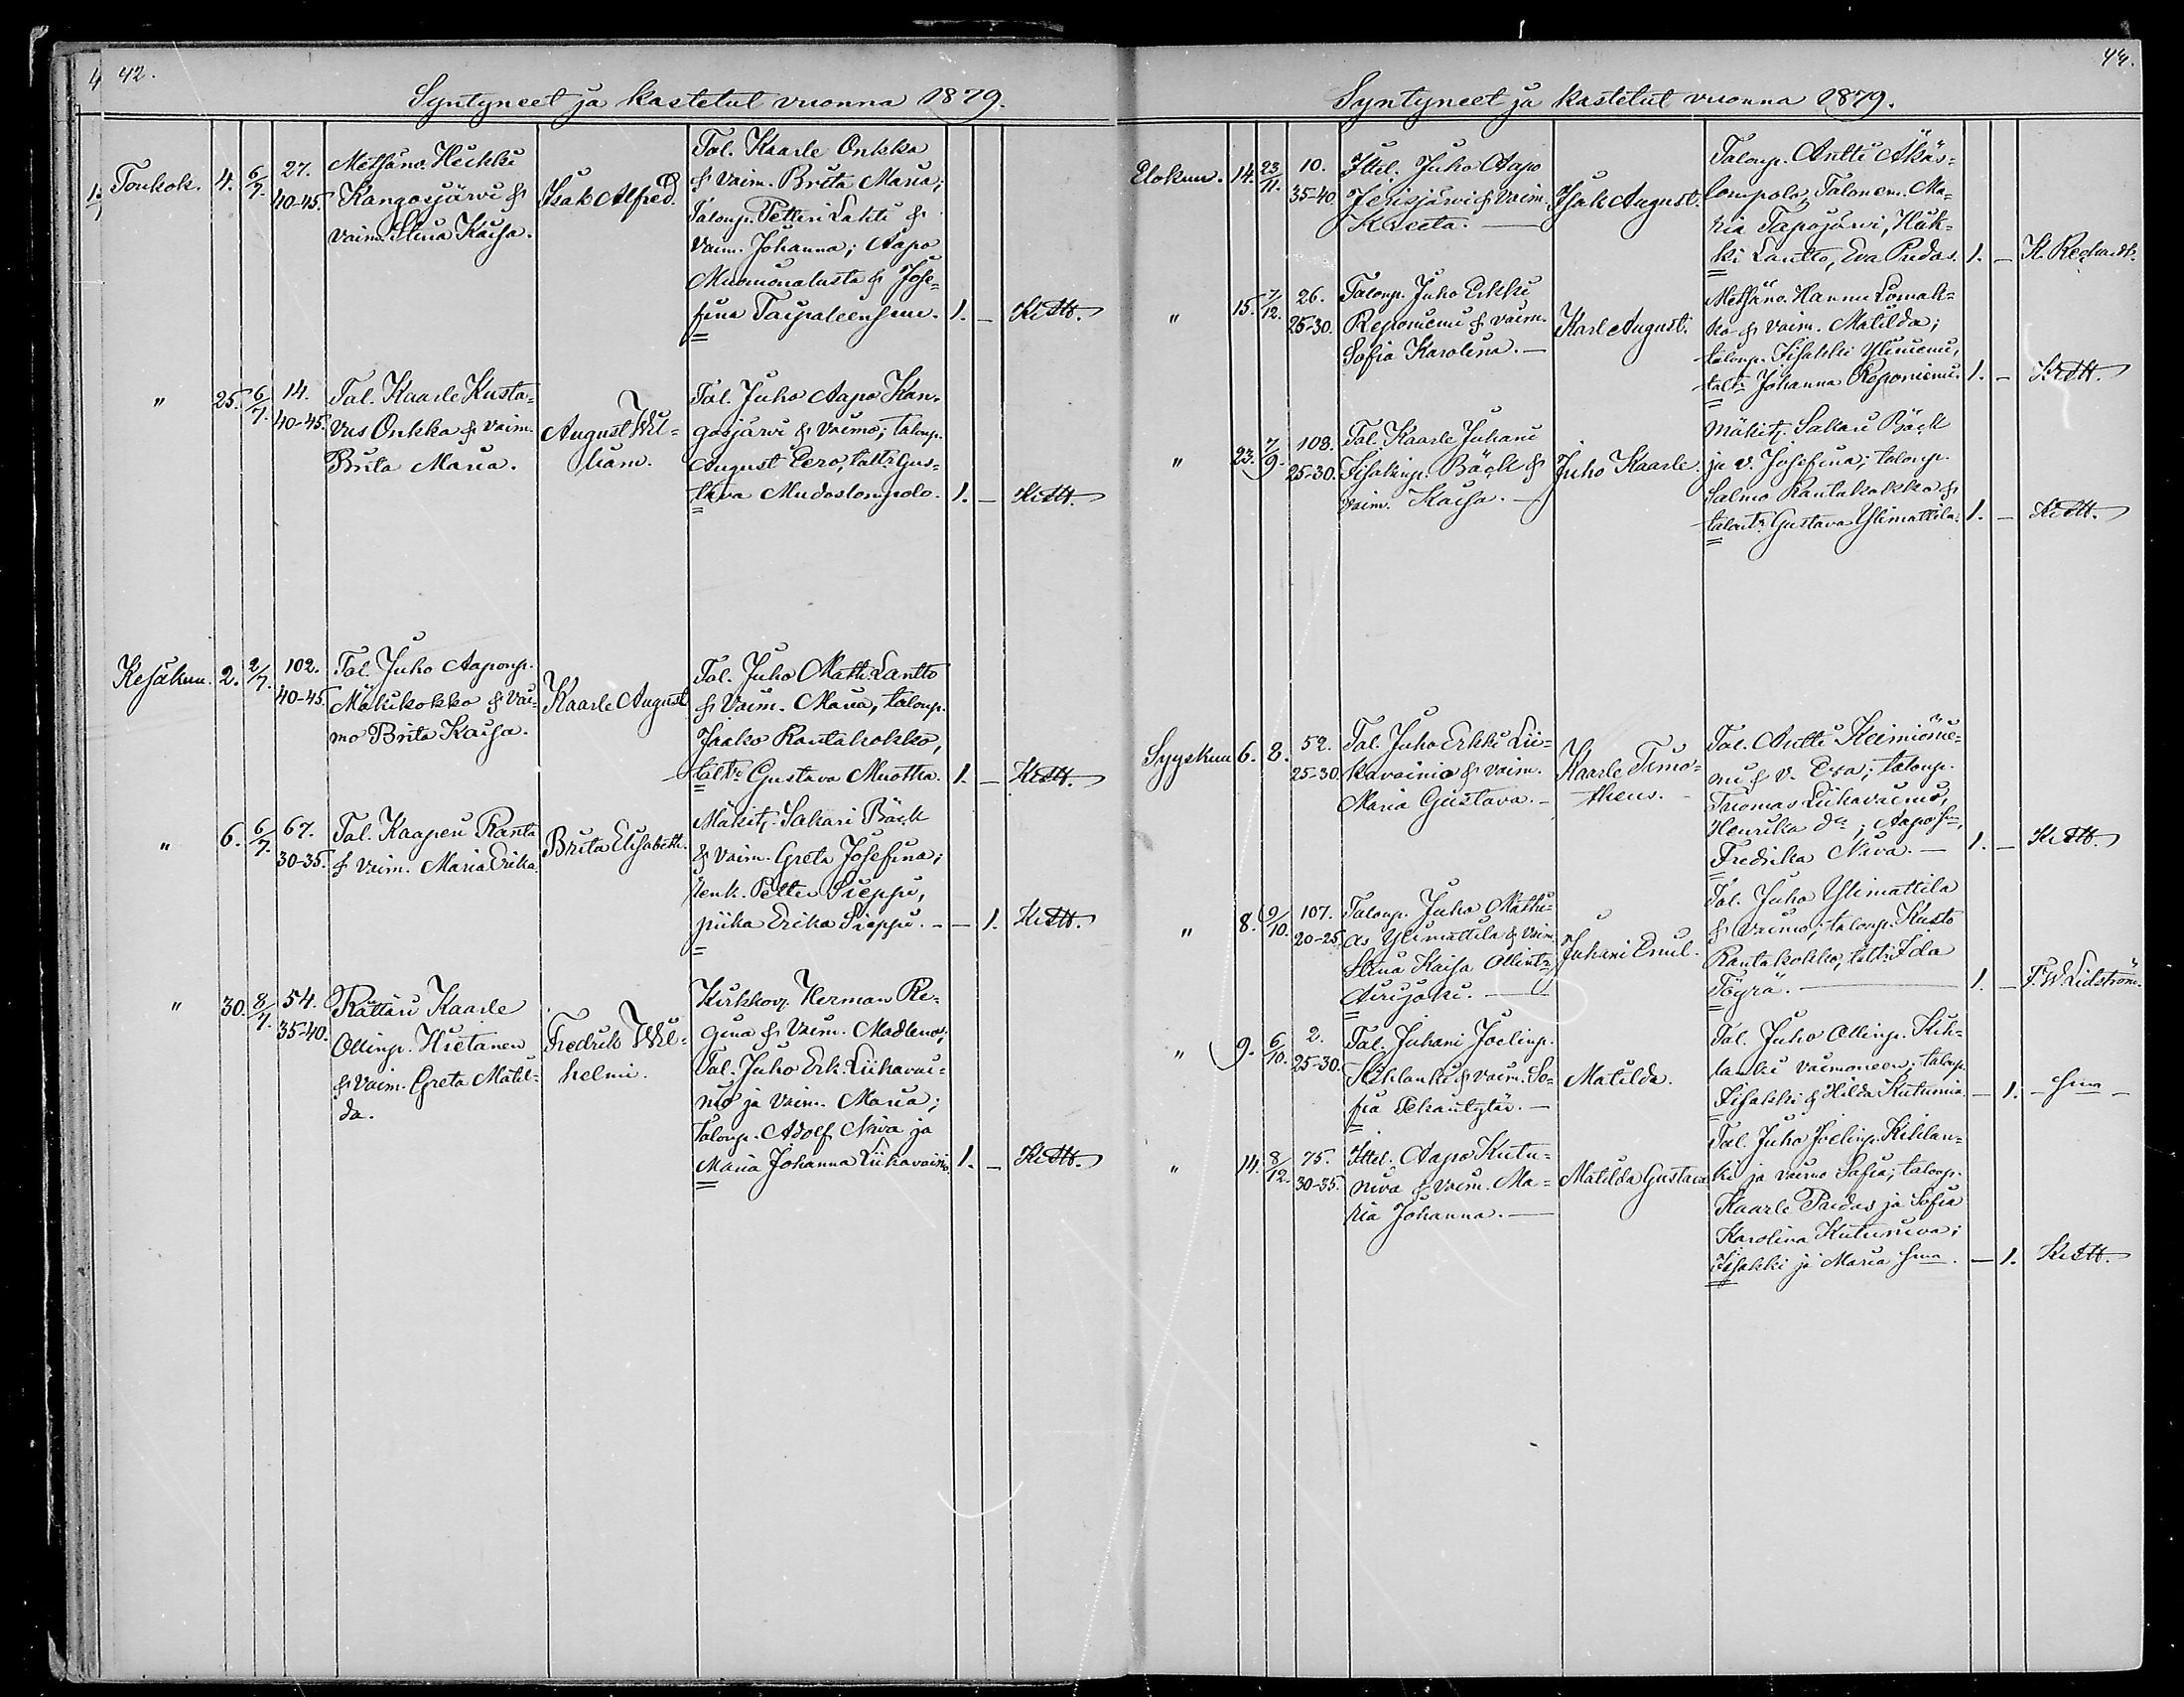 42.
Syntyneet ja kastetut vuonna 1879.
Toukok. 4. 6/7. 27. 40-45.
Metsäno. Heikki
Kangosjärvi &
vaim. Stina Kaisa.
Isak Alfred.
Tal. Kaarle Onkka
& vaim. Brita Maria;
Taloup. Petteri Lahti &
vaim. Johanna; Aapo
Muonionalusta & Jose=
fina Taipaleensuu. 1. –
" 25. 6/7. 14. 40-45.
Tal. Kaarle Kusta=
vus Onkka & vaim.
Brita Maria.
August Wil=
liam.
Tal. Juho Aapo Kan=
gosjärvi & vaimo; taloup.
August Eero, taltr. Gus=
tava Mudoslompolo. 1. –
Kesäkuu. 2. 2/7. 102. 40-45.
Tal. Juho Aaponp.
Mäkikokko & vai=
mo Brita Kaisa.
Kaarle August
Tal. Juho Matti Lantto
& vaim. Maria, taloup.
Jaako Rantakokko,
taltr. Gustava Muotka. 1. –
" 6. 6/7. 67. 30-35.
Tal. Kaaperi Ranta
& vaim. Maria Erika.
Brita Elisabeth.
Mäkit. Sakari Bäck
& vaim. Greta Josefina;
renk. Petter Sieppi,
piika Erika Sieppi. – – 1.
" 30. 8/7. 54. 35-40.
Rättäri Kaarle
Ollinp. Hietanen
& vaim. Greta Matil=
da.
Fredrik Wil=
helmi.
Kirkkov. Herman Re=
gina & vaim. Madlena;
Tal. Juho Erk. Liikavai=
nio ja vaim. Maria;
Taloup. Adolf Niva ja
Maria Johanna Liikavainio. 1. –
44.
Syntyneet ja kastetut vuonna 1879.
Elokuu. 14. 23/11. 10. 35-40.
Ittel. Juho Aapo
Jerisjärvi & vaim.
Kreeta. –
Isak August.
Taloup. Antti Äkäs=
lompolo, Talonem. Ma=
ria Tapojärvi, Heik=
ki Lantto, Eva Pudas. 1. –
" 15. 7/12. 26. 25-30.
Taloup. Juho Erkki
Reponiemi & vaim.
Sofia Karolina. –
Karl August.
Metsäno. Hannu Lomak=
ko & vaim. Matilda;
taloup. Iisakki Yliniemi,
taltr. Johanna Reponiemi. 1. –
" 23. 7/9. 108. 25-30.
Tal. Kaarle Juhani
Iisakinp. Bäck &
vaim. Kaisa. –
Juho Kaarle.
Mäkit. Sakari Bäck
ja v. Josefina; taloup.
Salmo Rantakokko &
Gustava Ylimattila. 1. –
Syyskuu 6. 8. 52. 25-30.
Tal. Juho Erkki Lii=
kavainio & vaim.
Maria Gustava. –
Kaarle Timo=
theus. –
Tal. Antti Keimiönie=
mi & v. Eva; taloup.
Tuomas Liikavainio,
Henrika; Aapo
Fredrika Niva. – 1. –
" 8. 9/10. 107. 20-25.
Taloup. Juho Mathi=
as Ylimattila & vaim
Stina Kaisa Ollintr.
Airijoki. –
Juhani Emil.
Tal. Juho Ylimattila
& vaimo; taloup. Kusto
Rantakokko, taltr. Ida
Töyrä. – 1. – F. W. Lidström.
" 9. 6/10. 2. 25-30.
Tal. Juhani Joelinp.
Kihlanki & vaim. So=
fia. –
Matilda.
Tal. Juho Ollinp. Kih=
lanki vaimoneen; taloup.
Iisakki & Hilda Kutuniva. – 1. –
" 14. 8/12. 75. 30-35.
Ittel. Aapo Kutu=
niva & vaim. Ma=
ria Johanna. –
Matilda Gustava
Tal. Juho Joelinp. Kihlan=
ki ja vaimo Sofia; taloup.
Kaarle Pudas ja Sofia
Karolina Kutuniva;
Iisakki ja Maria. – 1.